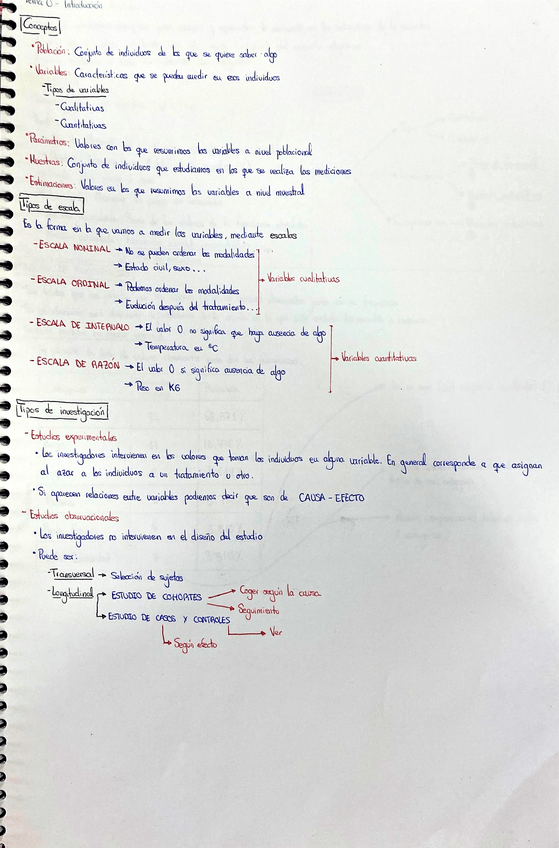 Tema 0 - Introducción
Conceptos
• Población: Conjunto de individuos de los que se quiere saber algo
• Variables: Características que se pueden medir en esos individuos
- Tipos de variables
- Cualitativas
- Cuantitativas
• Parámetros: Valores con los que resumimos las variables a nivel poblacional
• Muestras: Conjunto de individuos que estudiamos en los que se realiza las mediciones
• Estimaciones: Valores en los que resumimos las variables a nivel muestral
Tipos de escala
Es la forma en la que vamos a medir las variables, mediante escalas
- ESCALA NOMINAL → No se pueden ordenar las modalidades
→ Estado civil, sexo...
- ESCALA ORDINAL → Podemos ordenar las modalidades
→ Evolución después del tratamiento...
→ Variables cualitativas
- ESCALA DE INTERVALO → El valor 0 no significa que haya ausencia de algo
→ Temperatura en ºC
- ESCALA DE RAZÓN → El valor 0 si significa ausencia de algo
→ Peso en KG
→ Variables cuantitativas
Tipos de investigación
- Estudios experimentales
• Los investigadores intervienen en los valores que toman los individuos en alguna variable. En general corresponde a que asignan
al azar a los individuos a un tratamiento u otro.
• Si aparecen relaciones entre variables podremos decir que son de CAUSA - EFECTO
- Estudios observacionales
• Los investigadores no intervienen en el diseño del estudio
• Puede ser:
- Transversal → Selección de sujetos
- Longitudinal → ESTUDIO DE COHORTES → Coger según la causa
→ Seguimiento
→ ESTUDIO DE CASOS Y CONTROLES
→ Ver
→ Según efecto